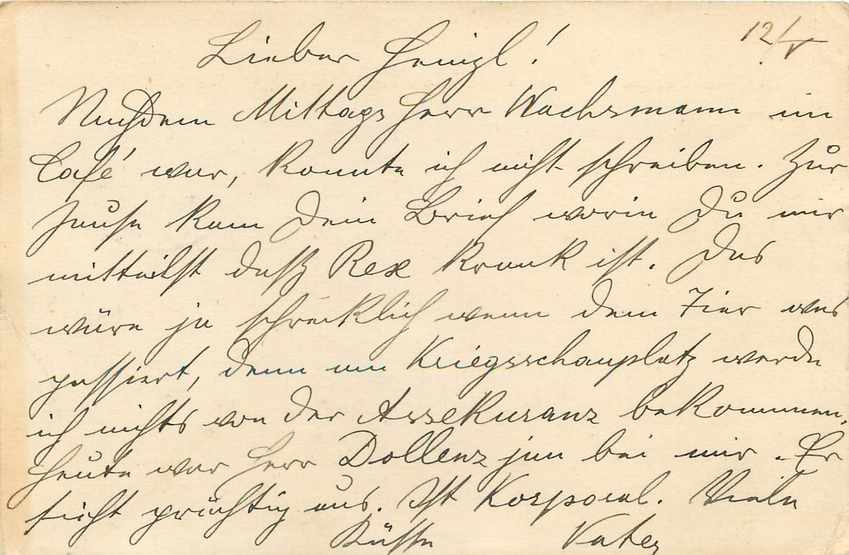 12/V
Lieber Heinzl!
Nachdem Mittags Herr Wachsmann im
Café war, konnte ich nicht schreiben. Zur
Jause kam Dein Brief worin Du mir
mitteilst daß Rex krank ist. Das
wäre ja schrecklich wenn dem Tier was
passiert, denn am Kriegsschauplatz werde
ich nichts von der Assekuranz bekommen.
Heute war Herr Dollenz jun bei mir. Er
sieht prächtig aus. Ist Korporal. Viele
Küsse Vater